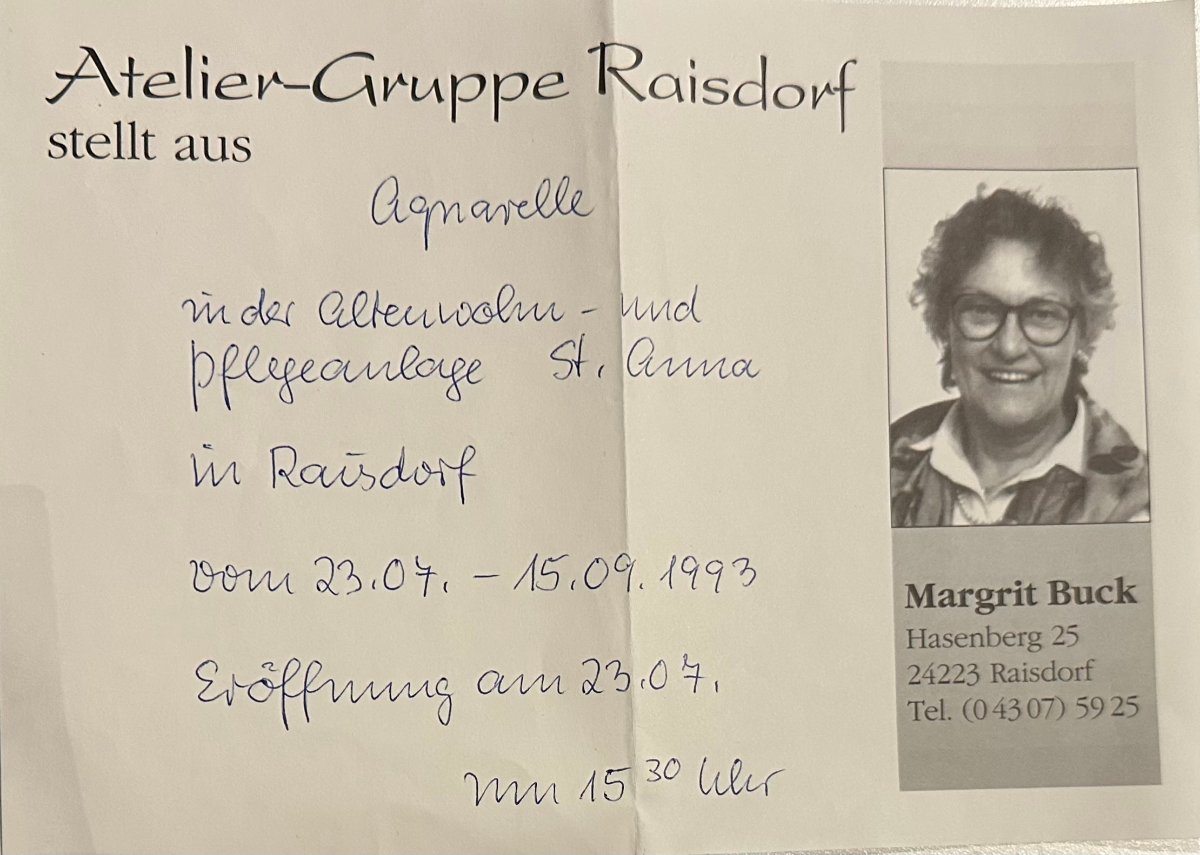 Atelier-Gruppe Raisdorf
stellt aus
Aquarelle
in der Altenwohn- und
Pflegeanlage St. Anna
in Raisdorf
vom 23.07. - 15.09.1993
Eröffnung am 23.07.
um 15 30 Uhr
Margrit Buck
Hasenberg 25
24223 Raisdorf
Tel. (0 43 07) 59 25